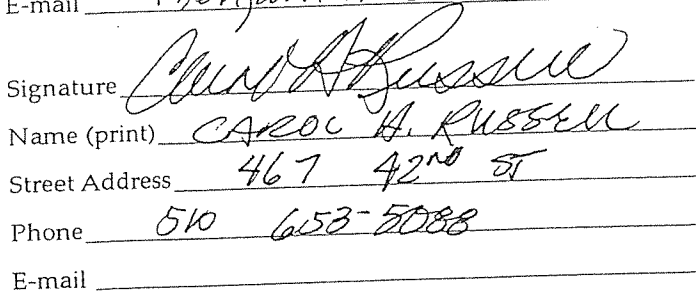 E-mail
Signature Carol H Russell
Name (print) CAROL H. RUSSELL
Street Address 467 42ND ST
Phone 510 653-5088
E-mail